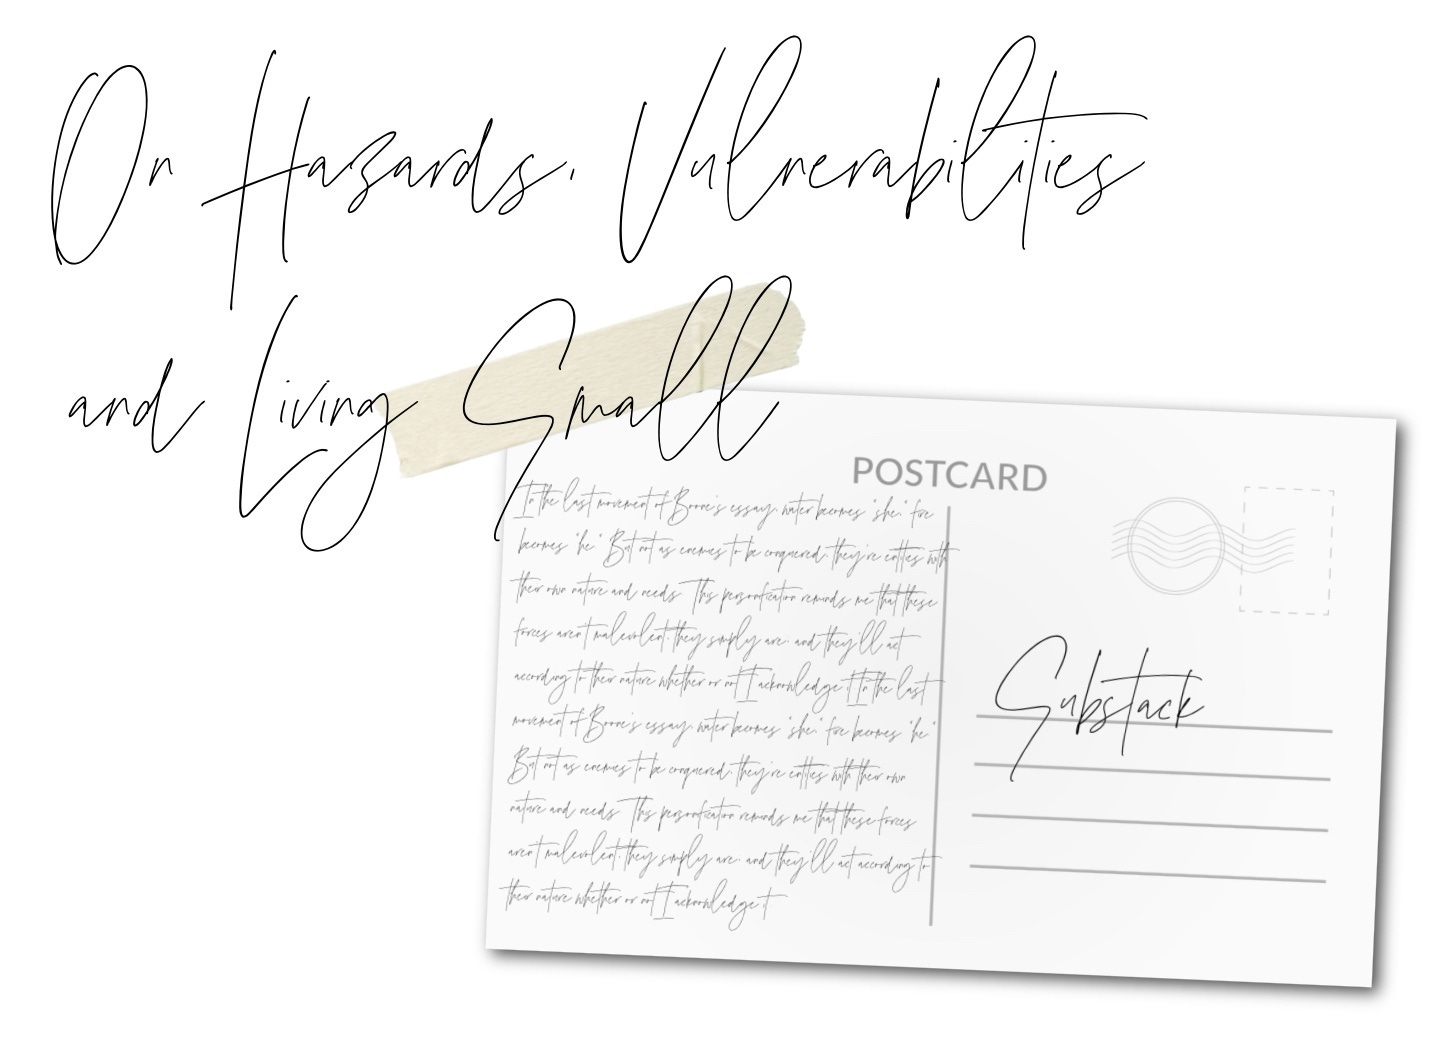 On Hazards, Vulnerabilities
and Living Small
POSTCARD
In the last movement of Boone's essay, water becomes "she," fire
becomes "he." But not as enemies to be conquered, they're entities with
their own nature and needs. This personification reminds me that these
forces aren't malevolent, they simply are, and they'll act
according to their nature whether or not I acknowledge it.In the last
movement of Boone's essay, water becomes "she," fire becomes "he."
But not as enemies to be conquered, they're entities with their own
nature and needs. This personification reminds me that these forces
aren't malevolent, they simply are, and they'll act according to
their nature whether or not I acknowledge it.
Substack